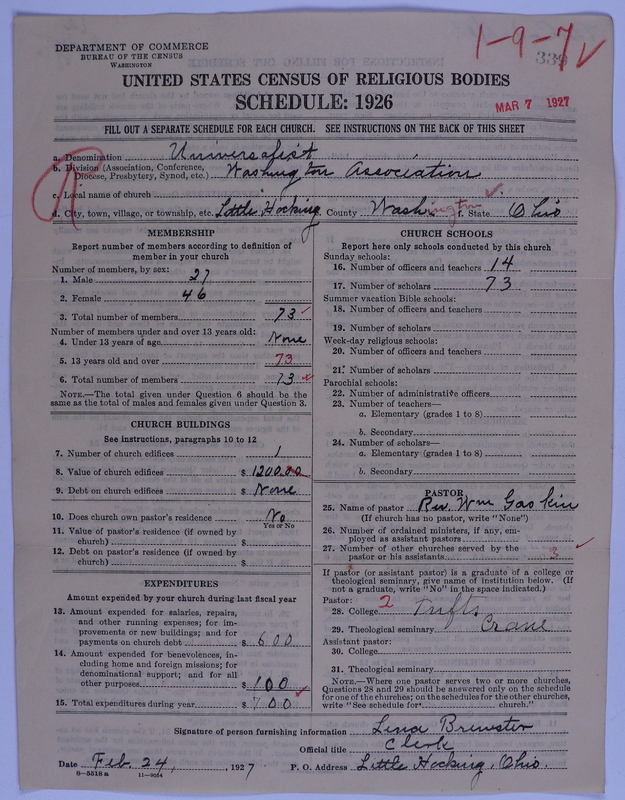 DEPARTMENT OF COMMERCE
BUREAU OF THE CENSUS
WASHINGTON
1-9-7 ✓
339
UNITED STATES CENSUS OF RELIGIOUS BODIES
SCHEDULE: 1926
MAR 7 1927
FILL OUT A SEPARATE SCHEDULE FOR EACH CHURCH. SEE INSTRUCTIONS ON THE BACK OF THIS SHEET
a. Denomination Universalist
b. Division (Association, Conference, Diocese, Presbytery, Synod, etc.) Washington Association
c. Local name of church
d. City, town, village, or township, etc. Little Hocking County Washington f. State Ohio
MEMBERSHIP
Report number of members according to definition of
member in your church
Number of members, by sex:
1. Male 27
2. Female 46
3. Total number of members 73
Number of members under and over 13 years old:
4. Under 13 years of age None
5. 13 years old and over 73
6. Total number of members 73
NOTE.—The total given under Question 6 should be
same as the total of males and females given under Question 3.
CHURCH BUILDINGS
See instructions, paragraphs 10 to 12
7. Number of church edifices 1
8. Value of church edifices $ 1200.00
9. Debt on church edifices $ None
10. Does church own pastor's residence No
Yes or No
11. Value of pastor's residence (if owned by
church) $
12. Debt on pastor's residence (if owned by
church) $
EXPENDITURES
Amount expended by your church during last fiscal year
13. Amount expended for salaries, repairs,
and other running expenses; for im-
provements or new buildings; and for
payments on church debt $ 600
14. Amount expended for benevolences, in-
cluding home and foreign missions; for
denominational support; and for all
other purposes $ 100
15. Total expenditures during year $ 700
CHURCH SCHOOLS
Report here only schools conducted by this church
Sunday schools:
16. Number of officers and teachers 14
17. Number of scholars 73
Summer vacation Bible schools:
18. Number of officers and teachers
19. Number of scholars
Week-day religious schools:
20. Number of officers and teachers
21. Number of scholars
Parochial schools:
22. Number of administrative officers
23. Number of teachers—
a. Elementary (grades 1 to 8)
b. Secondary
24. Number of scholars—
a. Elementary (grades 1 to 8)
b. Secondary
PASTOR
25. Name of pastor Rev. Wm Gaskin
(If church has no pastor, write "None")
26. Number of ordained ministers, if any, em-
ployed as assistant pastors
27. Number of other churches served by the
pastor or his assistants 3
If pastor (or assistant pastor) is a graduate of a college or
theological seminary, give name of institution below. (If
not a graduate, write "No" in the space indicated.)
Pastor: 2
28. College Tufts
29. Theological seminary Crane
Assistant pastor:
30. College
31. Theological seminary
NOTE.—Where one pastor serves two or more churches,
Questions 28 and 29 should be answered only on the schedule
for one of the churches; on the schedules for the other churches,
write "See schedule for church."
Signature of person furnishing information Lena Brewster
Official title Clerk
Date Feb. 24, 1927 P. O. Address Little Hocking, Ohio.
8-5518 a 11-9054